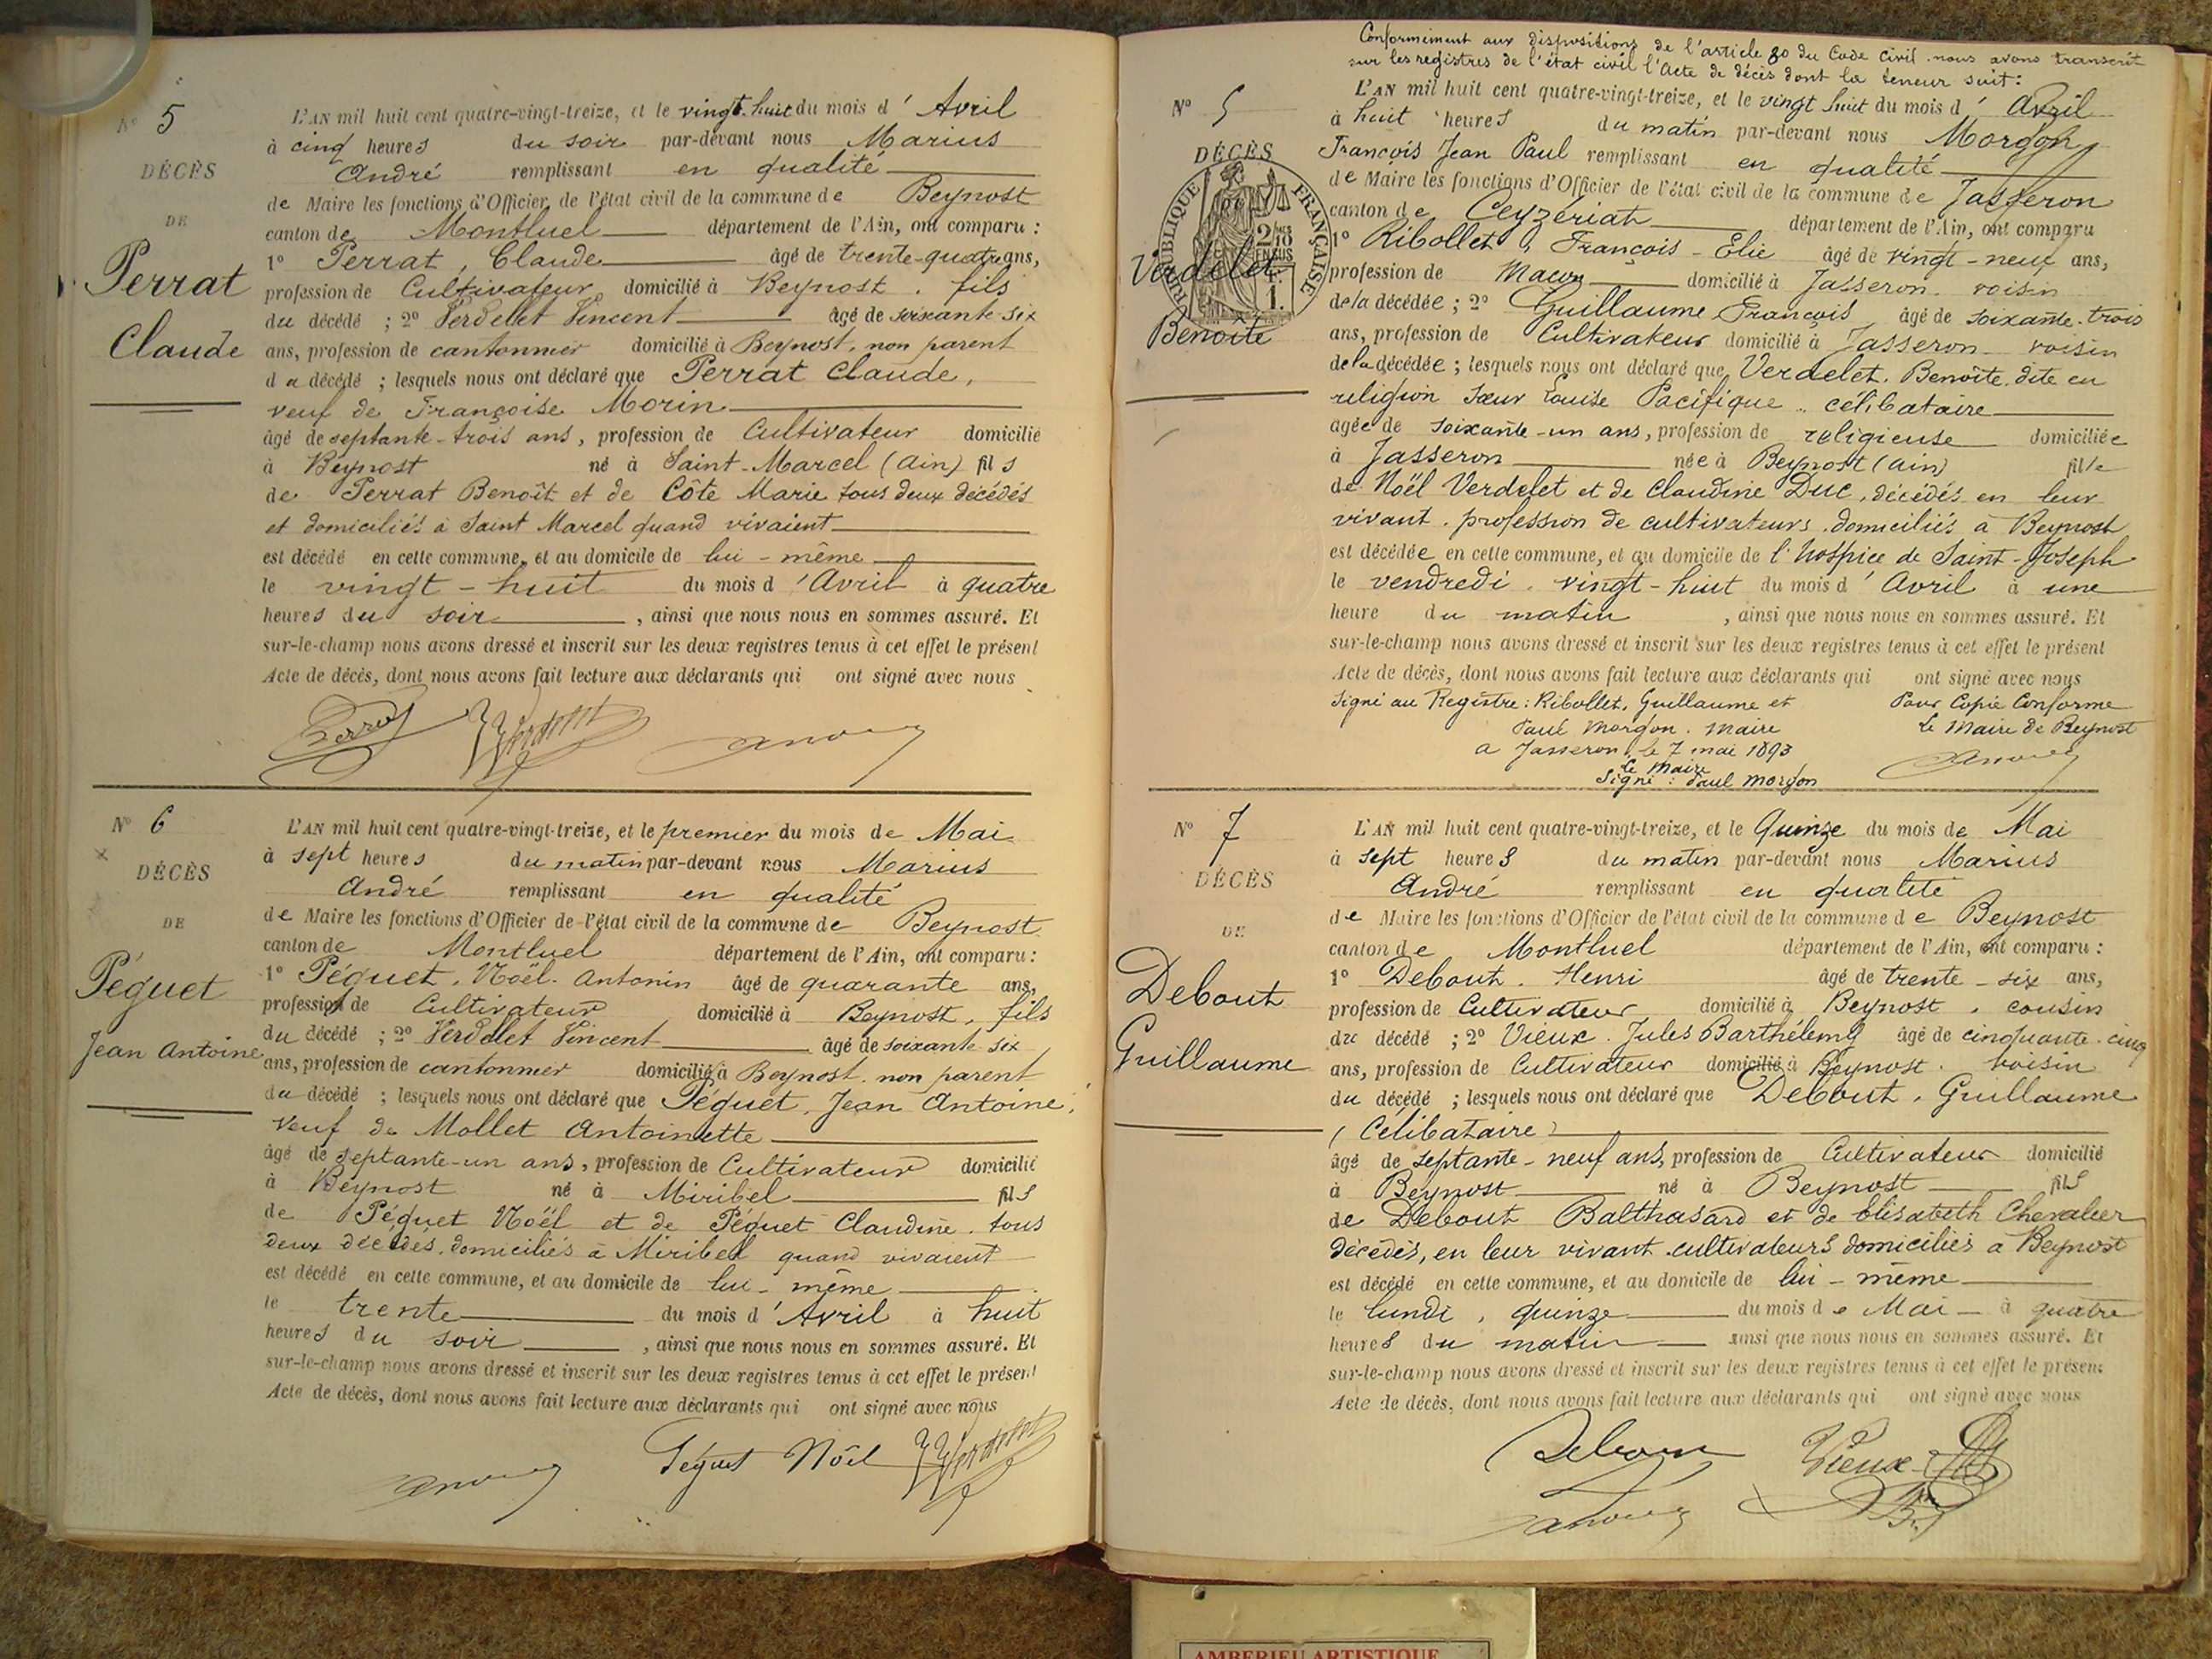 N° 5
DÉCÈS
DE
Perrat
Claude
L'AN mil huit cent quatre-vingt-treize, et le vingt-huit du mois d'Avril
à cinq heures du soir par-devant nous Marius
André remplissant en qualité
de Maire les fonctions d'Officier de l'état civil de la commune de Beynost
canton de Montluel département de l'Ain, ont comparu :
1° Perrat, Claude âgé de trente-quatre ans,
profession de Cultivateur domicilié à Beynost, fils
du décédé ; 2° Verdelet Vincent âgé de soixante-six
ans, profession de cantonnier domicilié à Beynost, non parent
du décédé ; lesquels nous ont déclaré que Perrat Claude,
veuf de Françoise Morin
âgé de septante-trois ans, profession de Cultivateur domicilié
à Beynost né à Saint-Marcel (Ain) fils
de Perrat Benoît et de Côte Marie tous deux décédés
et domiciliés à Saint Marcel quand vivaient
est décédé en cette commune, et au domicile de lui-même
le vingt-huit du mois d'Avril à quatre
heures du soir, ainsi que nous nous en sommes assuré. Et
sur-le-champ nous avons dressé et inscrit sur les deux registres tenus à cet effet le présent
Acte de décès, dont nous avons fait lecture aux déclarants qui ont signé avec nous
Perrat
N° 6
DÉCÈS
DE
Péguet
Jean Antoine
L'AN mil huit cent quatre-vingt-treize, et le premier du mois de Mai
à sept heures du matin par-devant nous Marius
André remplissant en qualité
de Maire les fonctions d'Officier de l'état civil de la commune de Beynost
canton de Montluel département de l'Ain, ont comparu :
1° Péguet, Noël Antonin âgé de quarante ans,
profession de Cultivateur domicilié à Beynost, fils
du décédé ; 2° Verdelet Vincent âgé de soixante six
ans, profession de cantonnier domicilié à Beynost, non parent
du décédé ; lesquels nous ont déclaré que Péguet, Jean Antoine,
veuf de Mollet Antoinette
âgé de septante-un ans, profession de Cultivateur domicilié
à Beynost né à Miribel fils
de Péguet Noël et de Péguet Claudine, tous
deux décédés, domiciliés à Miribel quand vivaient
est décédé en cette commune, et au domicile de lui-même
le trente du mois d'Avril à huit
heures du soir, ainsi que nous nous en sommes assuré. Et
sur-le-champ nous avons dressé et inscrit sur les deux registres tenus à cet effet le présent
Acte de décès, dont nous avons fait lecture aux déclarants qui ont signé avec nous
Péguet Nöel
Conformément aux dispositions de l'article 80 du Code Civil nous avons transcrit
sur les registres de l'état civil l'Acte de décès dont la teneur suit :
N° 5
DÉCÈS
RÉPUBLIQUE FRANÇAISE
Verdelet
Benoîte
L'AN mil huit cent quatre-vingt-treize, et le vingt huit du mois d'Avril
à huit heures du matin par-devant nous Morgon
François Jean Paul remplissant en qualité
de Maire les fonctions d'Officier de l'état civil de la commune de Jasseron
canton de Ceyzériat département de l'Ain, ont comparu
1° Ribollet, François-Elie âgé de vingt-neuf ans,
profession de Maçon domicilié à Jasseron voisin
de la décédée ; 2° Guillaume François âgé de soixante-trois
ans, profession de Cultivateur domicilié à Jasseron voisin
de la décédée ; lesquels nous ont déclaré que Verdelet, Benoîte, dite en
religion Sœur Louise Pacifique, célibataire
agée de soixante-un ans, profession de religieuse domiciliée
à Jasseron née à Beynost (Ain) fille
de Noël Verdelet et de Claudine Duc, décédés en leur
vivant, profession de cultivateurs, domiciliés à Beynost
est décédée en cette commune, et au domicile de l'hospice de Saint-Joseph
le vendredi, vingt-huit du mois d'Avril à une
heure du matin, ainsi que nous nous en sommes assuré. Et
sur-le-champ nous avons dressé et inscrit sur les deux registres tenus à cet effet le présent
Acte de décès, dont nous avons fait lecture aux déclarants qui ont signé avec nous
Signé au Registre : Ribollet, Guillaume et Pour Copie Conforme
Paul Morgon, Maire Le Maire de Beynost
a Jasseron, le 7 mai 1893
Le Maire
Signé : Paul Morgon
N° 7
DÉCÈS
DE
Debout
Guillaume
L'AN mil huit cent quatre-vingt-treize, et le Quinze du mois de Mai
à sept heures du matin par-devant nous Marius
André remplissant en qualité
de Maire les fonctions d'Officier de l'état civil de la commune de Beynost
canton de Montluel département de l'Ain, ont comparu :
1° Debout, Henri âgé de trente-six ans,
profession de Cultivateur domicilié à Beynost, cousin
du décédé ; 2° Vieux, Jules Barthélemy âgé de cinquante-cinq
ans, profession de Cultivateur domicilié à Beynost, voisin
du décédé ; lesquels nous ont déclaré que Debout, Guillaume
(Célibataire)
âgé de septante-neuf ans, profession de Cultivateur domicilié
à Beynost né à Beynost fils
de Debout Balthasard et de Elisabeth Chevalier
décédés, en leur vivant cultivateurs domiciliés à Beynost
est décédé en cette commune, et au domicile de lui-même
le lundi, quinze du mois de Mai à quatre
heures du matin ainsi que nous nous en sommes assuré. Et
sur-le-champ nous avons dressé et inscrit sur les deux registres tenus à cet effet le présent
Acte de décès, dont nous avons fait lecture aux déclarants qui ont signé avec nous
Debout Vieux
AMBERIEU ARTISTIQUE